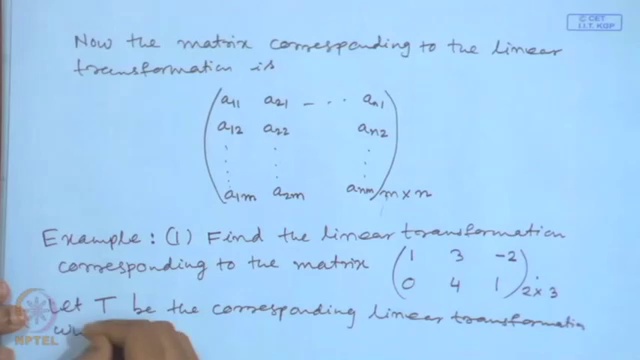 © CET
I.I.T. KGP
Now the matrix corresponding to the linear
transformation is
a11 a21 - - .. an1
a12 a22 an2
: : :
a1m a2m anm m×n
Example: (1) Find the linear transformation
corresponding to the matrix (1 3 -2
0 4 1) 2×3
Let T be the corresponding linear transformation
NPTEL